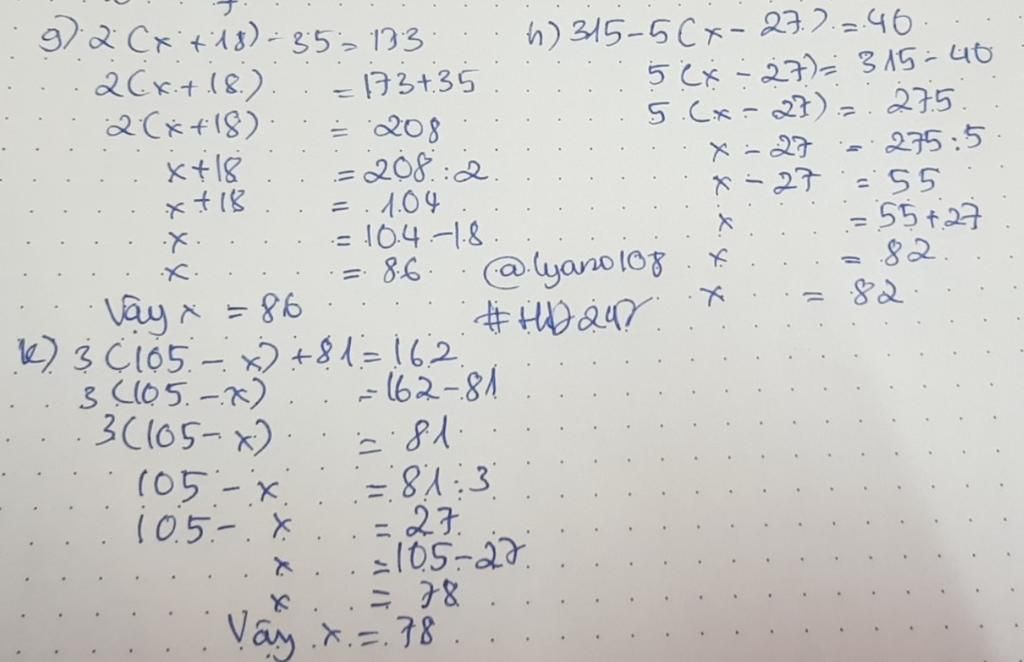 g) 2(x + 18) - 35 = 173
2(x + 18) = 173+35
2(x+18) = 208
x+18 = 208 : 2
x+18 = 104
x = 104 - 18
x = 86
Vậy x = 86
h) 315 - 5(x - 27) = 40
5(x - 27) = 315 - 40
5(x - 27) = 275
x - 27 = 275 : 5
x - 27 = 55
x = 55 + 27
x = 82
x = 82
@lyano108
#HD247
k) 3(105 - x) + 81 = 162
3(105 - x) = 162 - 81
3(105 - x) = 81
105 - x = 81 : 3
105 - x = 27
x = 105 - 27
x = 78
Vậy x = 78